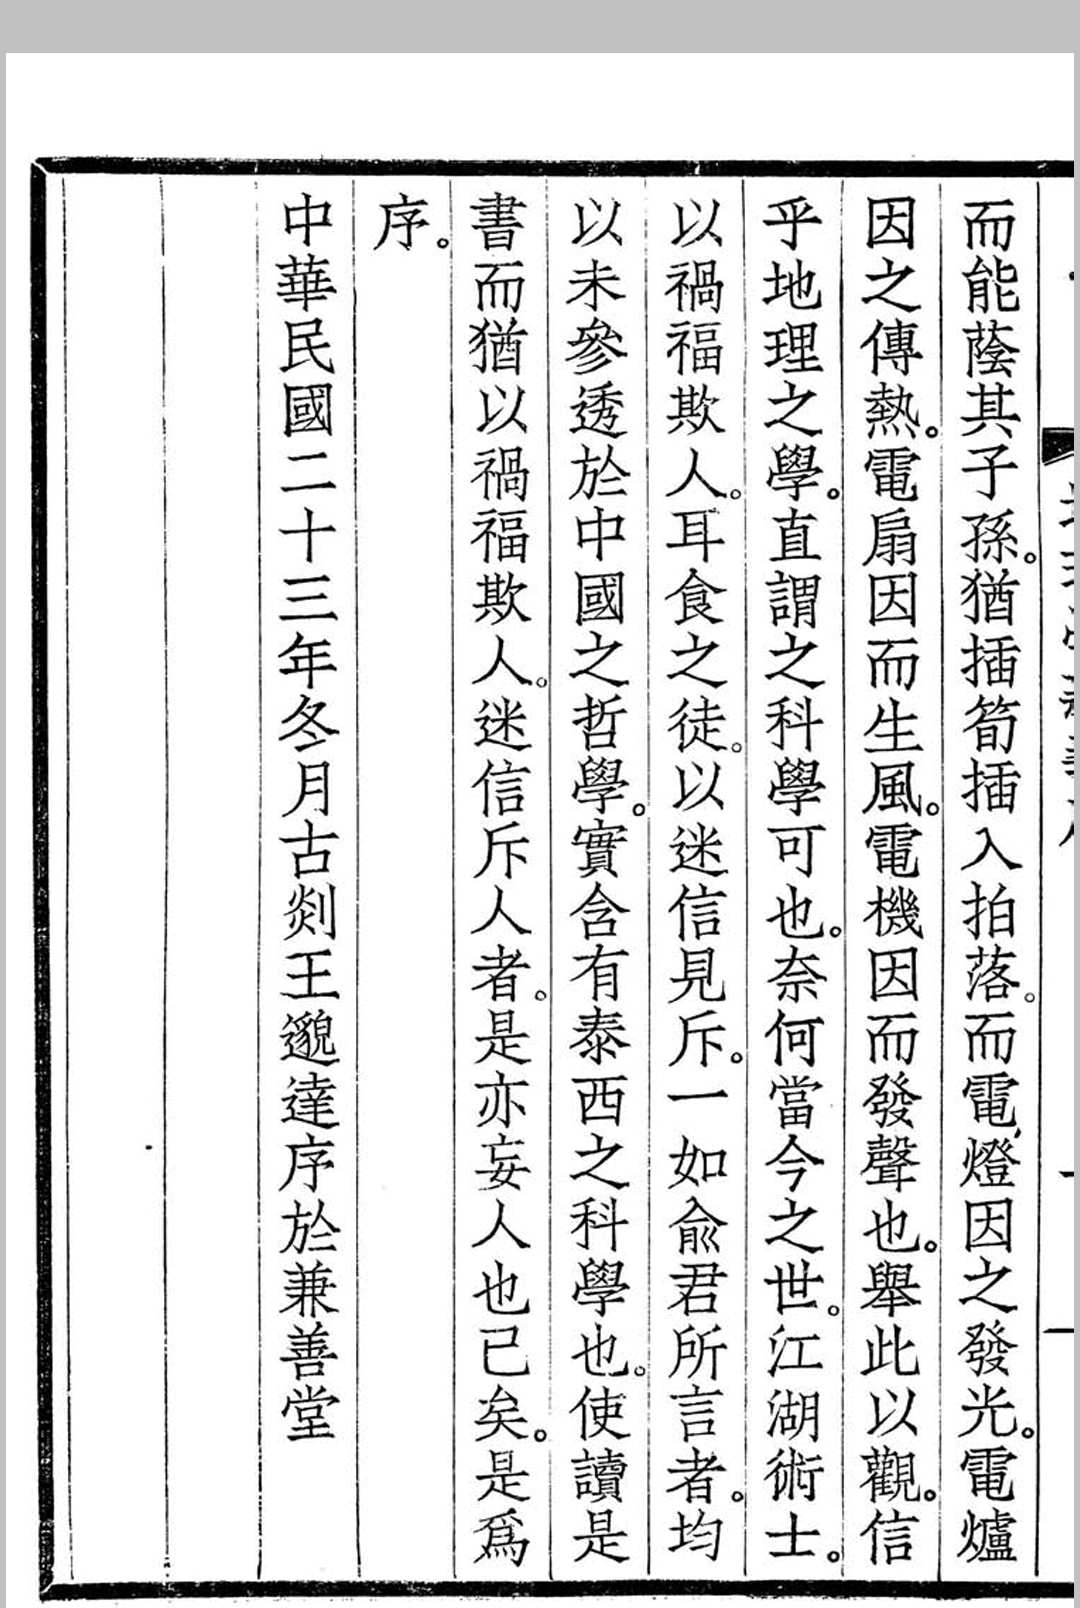 而能蔭其子孫。猶插筍插入拍落。而電燈因之發光。電爐
因之傳熱。電扇因而生風。電機因而發聲也。舉此以觀。信
乎地理之學。直謂之科學可也。奈何當今之世。江湖術士。
以禍福欺人。耳食之徒。以迷信見斥。一如俞君所言者。均
以未參透於中國之哲學。實含有泰西之科學也。使讀是
書而猶以禍福欺人。迷信斥人者。是亦妄人也已矣。是爲
序。
中華民國二十三年冬月古剡王邈達序於兼善堂